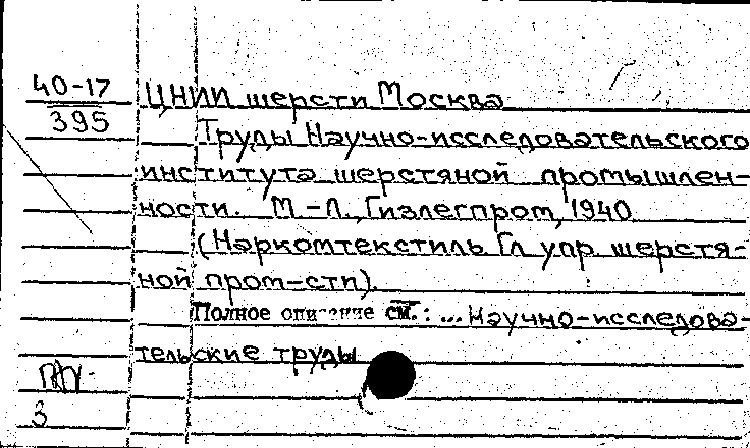 40-17
395
ЦНИИ шерсти Москва
Труды Научно-исследовательского
института шерстяной промышлен-
ности. М.-Л., Гизлегпром, 1940
(Наркомтекстиль Гл упр шерстя-
ной пром-сти).
Полное описание см.: ... Научно-исследова-
тельские труды
3